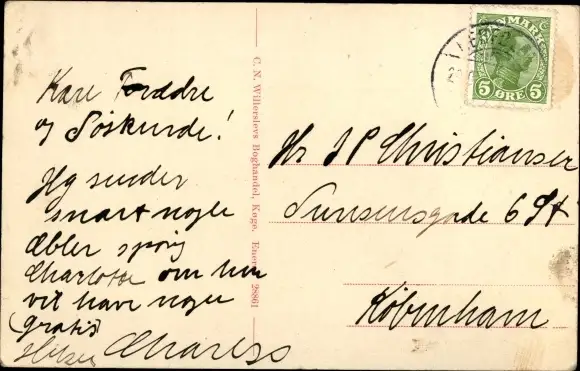 Kære Forældre
og Söskende!
Jeg sender
snart nogle
Æbler spörg
Charlotte om hun
vil have nogen
(gratis)
Hilsen Charles
C. N. Willerslevs Boghandel, Køge. Eneret 28861
DANMARK
5 ØRE 5
Hr J P Christiansen
Sunsensgade 6 St
København